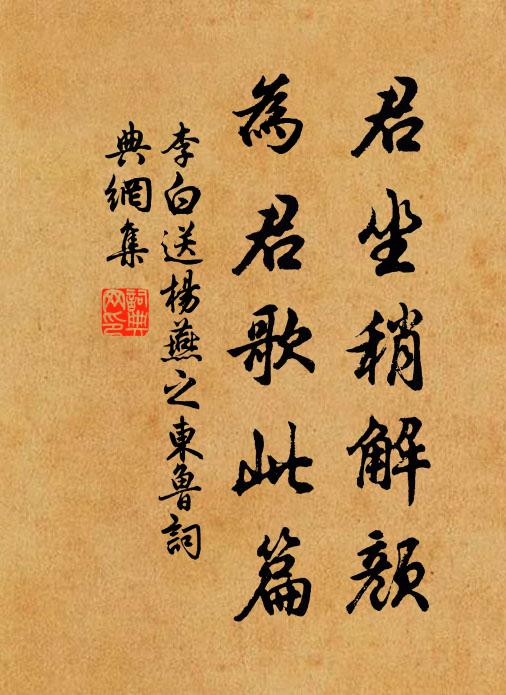 君坐稍解顏
為君歌此篇
李白送楊燕之東魯詞
典網集
詞典
网印